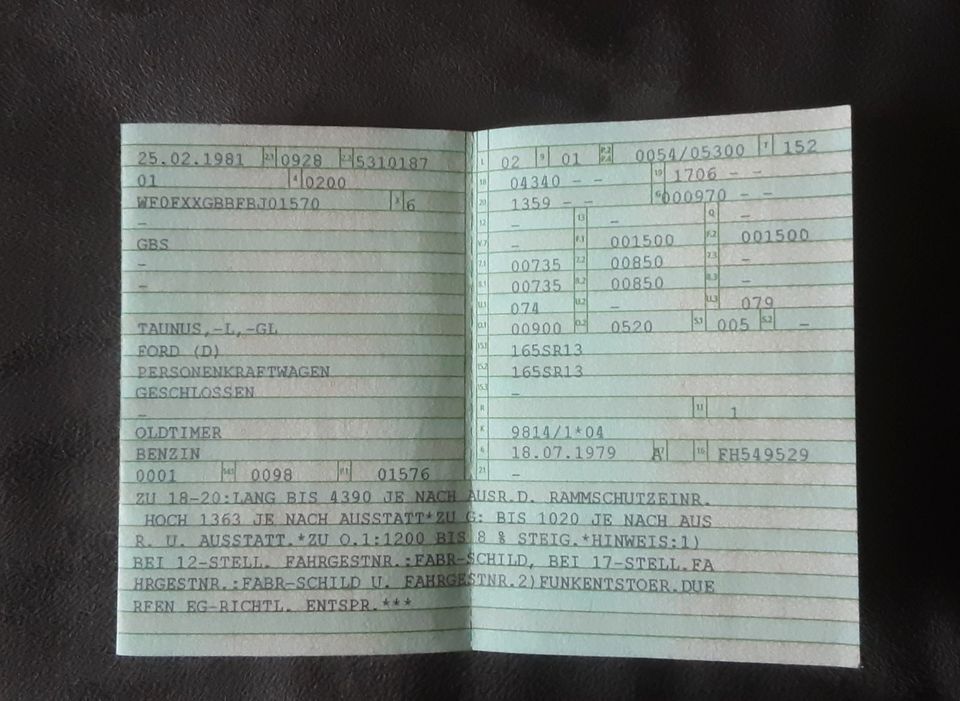 25.02.1981 2.1 0928 2.2 5310187
01 4 0200
WF0FXXGBBFBJ01570 3 6
–
GBS
–
–
TAUNUS,-L,-GL
FORD (D)
PERSONENKRAFTWAGEN
GESCHLOSSEN
–
OLDTIMER
BENZIN
0001 14.1 0098 P.1 01576
L 02 9 01 P.2 P.4 0054/05300 T 152
18 04340 – – 19 1706 – –
20 1359 – – G 000970 – –
12 – 13 – Q –
V.7 – F.1 001500 F.2 001500
7.1 00735 7.2 00850 7.3 –
8.1 00735 8.2 00850 8.3 –
U.1 074 U.2 – U.3 079
O.1 00900 O.2 0520 S.1 005 S.2 –
15.1 165SR13
15.2 165SR13
15.3 –
R 11 1
K 9814/1*04
6 18.07.1979 17 16 FH549529
21 –
ZU 18-20:LANG BIS 4390 JE NACH AUSR.D. RAMMSCHUTZEINR.
HOCH 1363 JE NACH AUSSTATT*ZU G: BIS 1020 JE NACH AUS
R. U. AUSSTATT.*ZU O.1:1200 BIS 8 % STEIG.*HINWEIS:1)
BEI 12-STELL. FAHRGESTNR.:FABR-SCHILD, BEI 17-STELL.FA
HRGESTNR.:FABR-SCHILD U. FAHRGESTNR.2)FUNKENTSTOER.DUE
RFEN EG-RICHTL. ENTSPR.***